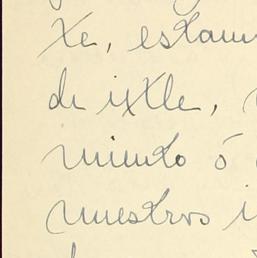 te, estam
de ixtle,
miento ó
nuestros i